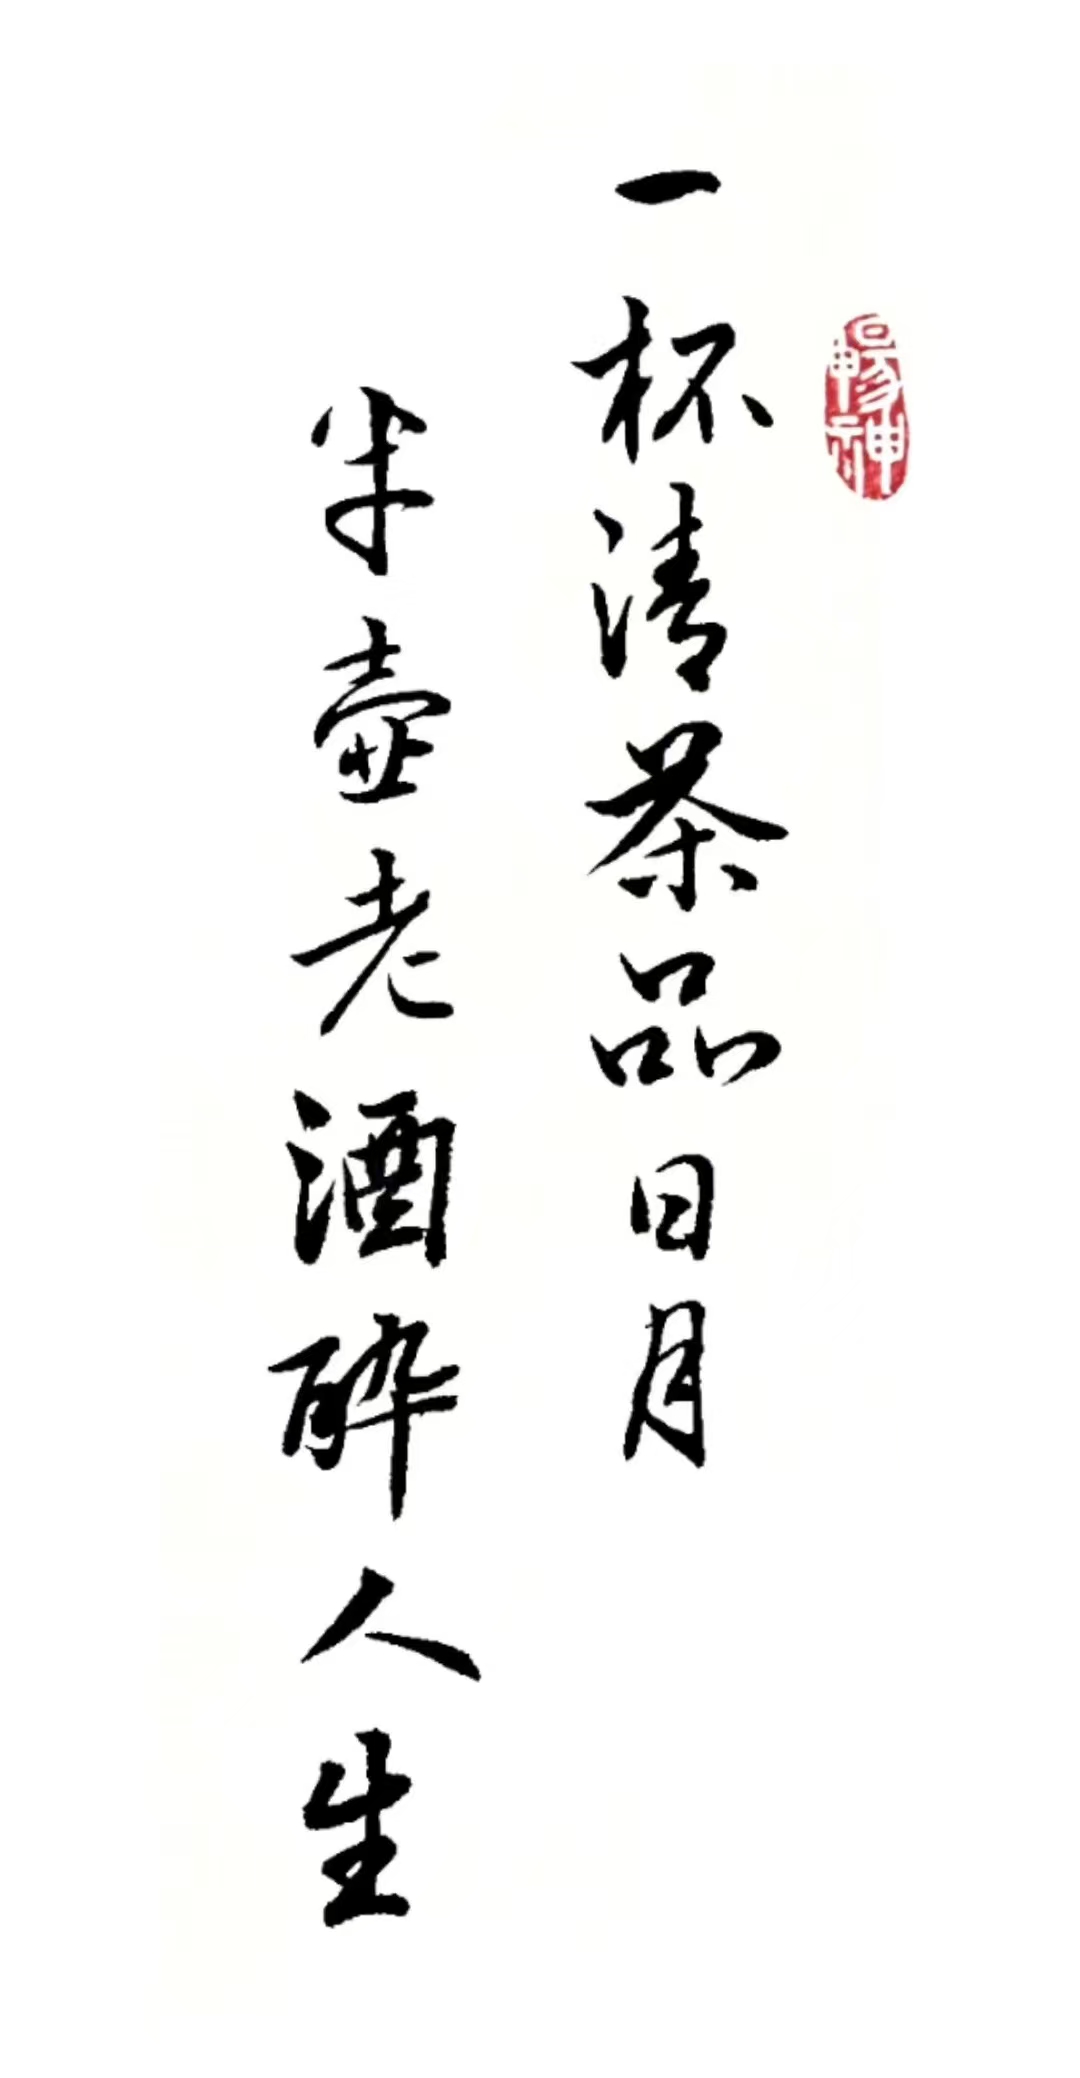 一杯清茶品日月
半壶老酒醉人生
暢神